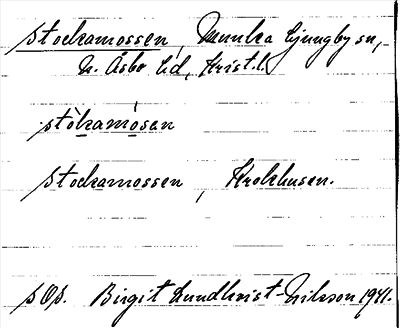 Stockamossen, Munka Ljungby sn,
N. Åsbo hd, Krist.l.
stòkamósen
Stockamossen, Krokhusen.
SOp. Birgit Lundkvist-Nilsson 1941.